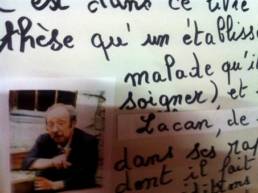 est dans ce livre
thèse qu'un établisse
malade qu'i
soigner) et
Lacan, de
dans ses rap
dont il fait